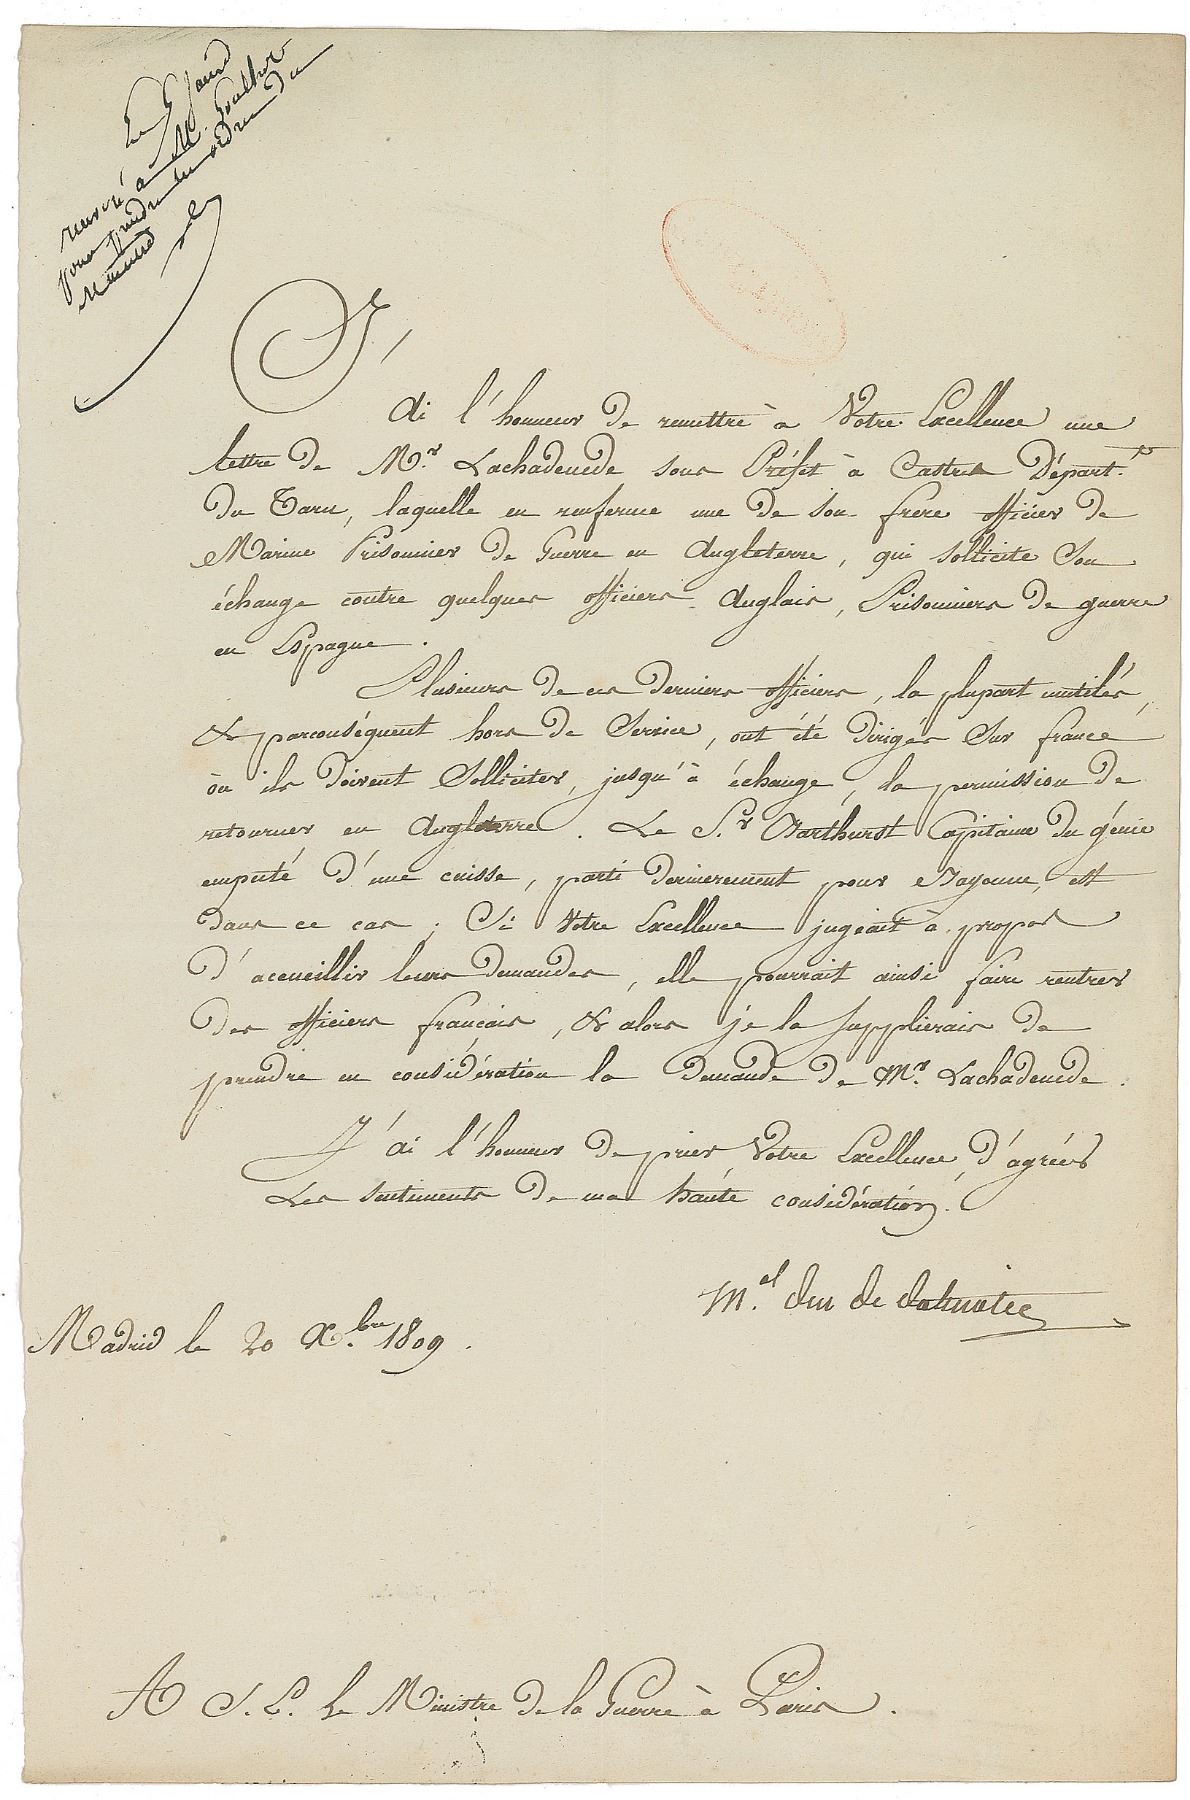 Le 5 Janv
renvoyé à M. Gauthier
pour prendre les ordres du
Ministre
J'
ai l'honneur de remettre à Votre Excellence une
lettre de M.r Lachadenede sous Préfet à Castres Départ.t
du Tarn, laquelle en renferme une de son frère officier de
Marine Prisonnier de Guerre en Angleterre, qui sollicite son
échange contre quelques officiers Anglais, Prisonniers de guerre
en Espagne.
Plusieurs de ces derniers officiers, la plupart mutilés,
& parconséquent hors de Service, ont été dirigés sur france
où ils doivent Solliciter, jusqu'à échange, la permission de
retourner en Angleterre. Le S.r Barthurst Capitaine du génie
amputé d'une cuisse, parti dernierement pour Bayonne, est
dans ce cas; Si Votre Excellence jugeait à propos
d'accueillir leurs demandes, elle pourrait ainsi faire rentrer
des officiers français, & alors je la supplierais de
prendre en considération la demande de M.r Lachadenede.
J'ai l'honneur de prier Votre Excellence, d'agréer
Les sentiments de ma haute considération.
M.al duc de dalmatie
Madrid le 20 X.bre 1809.
A S. E. Le Ministre de la Guerre à Paris.